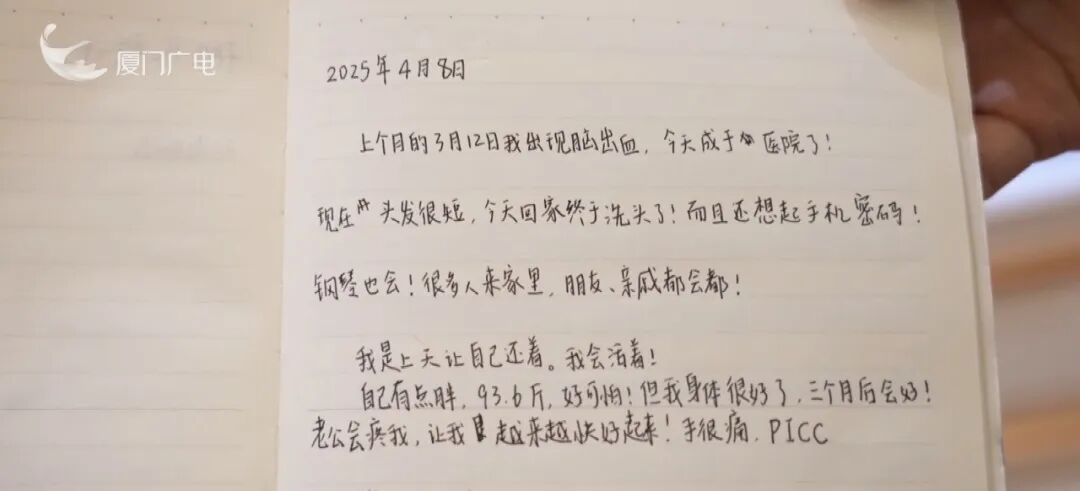 厦门广电
2025年4月8日
上个月的3月12日我出现脑出血，今天成于医院了！
现在头发很短，今天回家终于洗头了！而且还想起手机密码！
钢琴也会！很多人来家里，朋友、亲戚都会都！
我是上天让自己还着。我会活着！
自己有点胖，93.6斤，好可怕！但我身体很好了，三个月后会好！
老公会疼我，让我越来越快好起来！手很痛，PICC